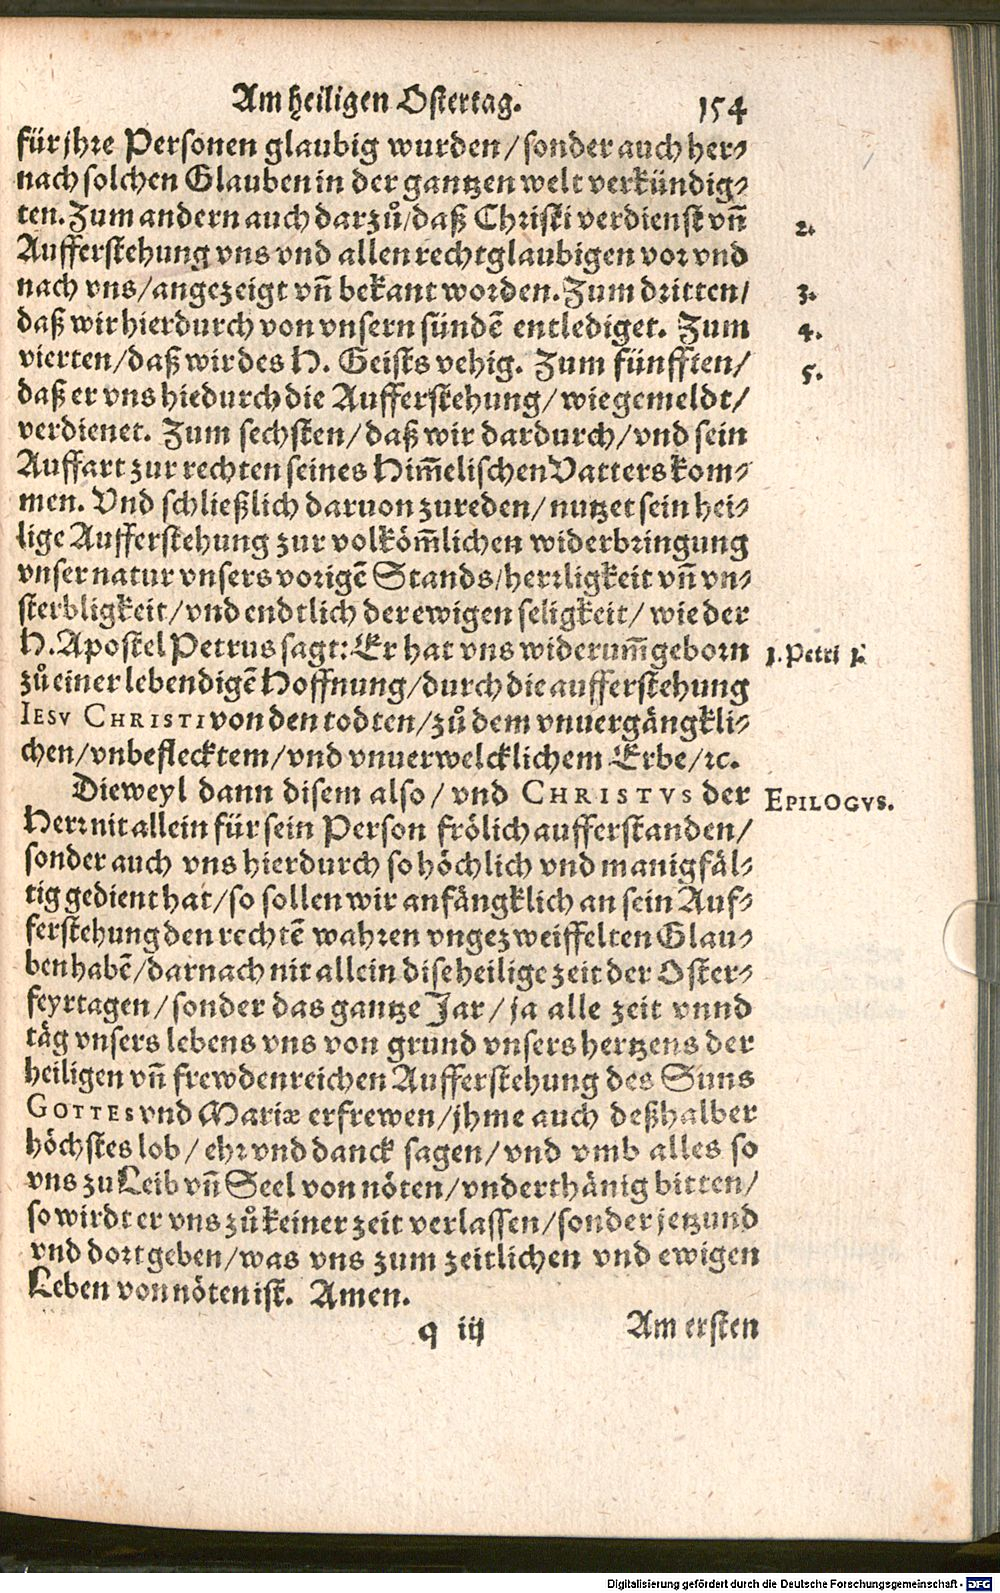 Am heiligen Ostertag. 154
für jhre Personen glaubig wurden/ sonder auch her-
nach solchen Glauben in der gantzen welt verkündig-
ten. Zum andern auch darzů/ daß Christi verdienst vñ
2.
Aufferstehung vns vnd allen rechtglaubigen vor vnd
nach vns/ angezeigt vñ bekant worden. Zum dritten/
3.
daß wir hierdurch von vnsern sündẽ entlediget. Zum
4.
vierten/ daß wir des H. Geists vehig. Zum fünfften/
5.
daß er vns hiedurch die Aufferstehung/ wie gemeldt/
verdienet. Zum sechsten/ daß wir dardurch/ vnd sein
Auffart zur rechten seines Him̃elischen Vatters kom-
men. Vnd schließlich daruon zureden/ nutzet sein hei-
lige Aufferstehung zur volköm̃lichen widerbringung
vnser natur vnsers vorigẽ Stands/ herrligkeit vñ vn-
sterbligkeit/ vnd endtlich der ewigen seligkeit/ wie der
H. Apostel Petrus sagt: Er hat vns widerum̃ geborn
1. Petri 1.
zů einer lebendigẽ Hoffnung/ durch die aufferstehung
IESV CHRISTI von den todten/ zů dem vnuergängkli-
chen/ vnbeflecktem/ vnd vnuerwelcklichem Erbe/ ꝛc.
Dieweyl dann disem also/ vnd CHRISTVS der
EPILOGVS.
Herr nit allein für sein Person frölich aufferstanden/
sonder auch vns hierdurch so höchlich vnd manigfäl-
tig gedient hat/ so sollen wir anfängklich an sein Auf-
ferstehung den rechtẽ wahren vngezweiffelten Glau-
ben habẽ/ darnach nit allein dise heilige zeit der Oster-
feyrtagen/ sonder das gantze Jar/ ja alle zeit vnnd
täg vnsers lebens vns von grund vnsers hertzens der
heiligen vñ frewdenreichen Aufferstehung des Suns
GOTTES vnd Mariæ erfrewen/ jhme auch deßhalber
höchstes lob/ ehr vnd danck sagen/ vnd vmb alles so
vns zu Leib vñ Seel von nöten/ vnderthänig bitten/
so wirdt er vns zů keiner zeit verlassen/ sonder jetzund
vnd dort geben/ was vns zum zeitlichen vnd ewigen
Leben von nöten ist. Amen.
q iij Am ersten
Digitalisierung gefördert durch die Deutsche Forschungsgemeinschaft - DFG